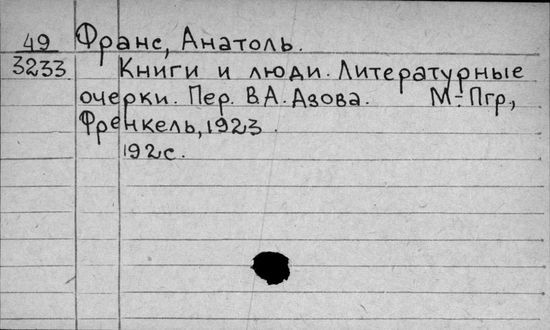 49 Франс, Анатоль.
3233 Книги и люди. Литературные
очерки. Пер. В.А. Азова. М.-Пгр.,
Френкель, 1923.
192с.